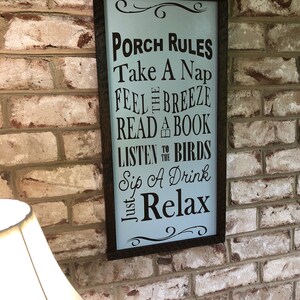 PORCH RULES
Take A Nap
FEEL THE BREEZE
READ A BOOK
LISTEN TO THE BIRDS
Sip A Drink
Just Relax